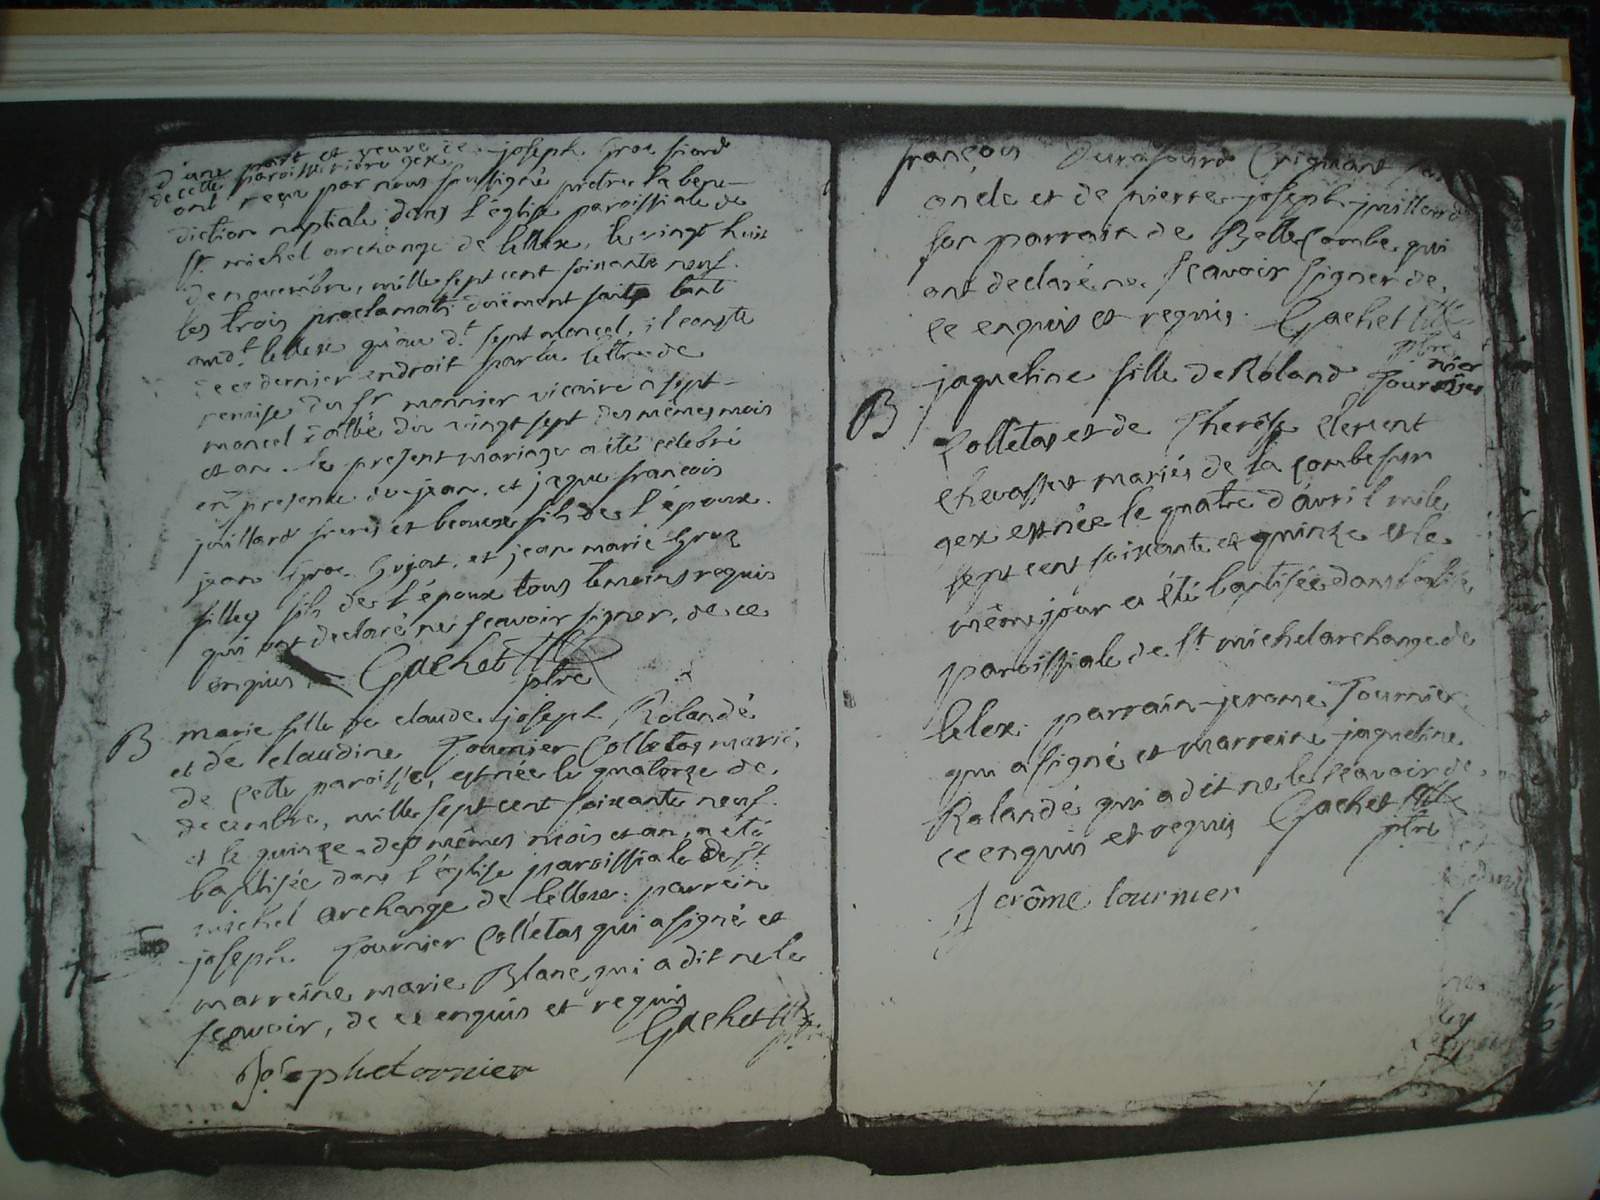 d'une part et veuve de joseph Groz fiard
de cette paroisse rière gex
ont reçu par nous soussigné prêtre la bene-
diction nuptiale dans l'église paroissiale de
St michel archange de lellex, le vingt huit
de novembre, mille sept cent soixante neuf.
les trois proclamats duëment faits tant
aud.t lellex qu'au d.t septmoncel, il conste
de ce dernier endroit par la lettre de
remise du Sr monnier vicaire à sept-
moncel dattée du vingt sept des mêmes mois
et an. le present mariage a été célébré
en presence de jean, et jaque françois
juillard freres et beaux fils de l'épouse.
jean Groz Gojat, et jean marie Groz
filley fils de l'époux tous temoins requis
qui ont declaré ne scavoir signer, de ce
enquis Gachet
ptre
B marie fille de claude joseph Rolandé
et de claudine Tournier Colletas mariés
de cette paroisse, est née le quatorze de
decembre, mille sept cent soixante neuf.
et le quinze des mêmes mois et an, a été
baptisée dans l'église paroissiale de St
michel archange de lellex. parrein
joseph Tournier Collétas qui a signé et
marreine marie Blanc qui a dit ne le
scavoir, de ce enquis et requis
Gachet
ptre
Josephe tornier
françois Durafourd
oncle et de pierre joseph juillard
son parrain de Bellecombe qui
ont declaré ne scavoir signer de
ce enquis et requis. Gachet
ptre
B jaqueline fille de Roland Tournier
Colletas et de Therese Clement
chevassut mariés de la combe sur
gex est née le quatre d'avril mile
sept cent soixante et quinze et le
même jour a été baptisée dans l'eglise
paroissiale de St michel archange de
lelex. parrain jerome Tournier
qui a signé et marreine jaqueline
Rolandé qui a dit ne le scavoir de
ce enquis et requis Gachet
ptre
Jerôme tournier